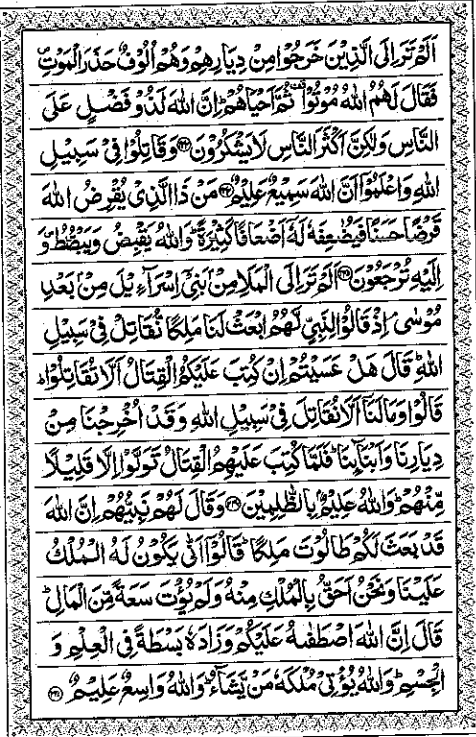 اَلَمْ تَرَ اِلَى الَّذِيْنَ خَرَجُوْا مِنْ دِيَارِهِمْ وَهُمْ اُلُوْفٌ حَذَرَ الْمَوْتِ
فَقَالَ لَهُمُ اللهُ مُوْتُوْا ثُمَّ اَحْيَاهُمْ اِنَّ اللهَ لَذُوْ فَضْلٍ عَلَى
النَّاسِ وَلٰكِنَّ اَكْثَرَ النَّاسِ لَا يَشْكُرُوْنَ ﴿۲۴۳﴾ وَقَاتِلُوْا فِيْ سَبِيْلِ
اللهِ وَاعْلَمُوْا اَنَّ اللهَ سَمِيْعٌ عَلِيْمٌ ﴿۲۴۴﴾ مَنْ ذَا الَّذِيْ يُقْرِضُ اللهَ
قَرْضًا حَسَنًا فَيُضٰعِفَهٗ لَهٗ اَضْعَافًا كَثِيْرَةً ؕ وَاللهُ يَقْبِضُ وَيَبْصُۜطُ ۪ وَ
اِلَيْهِ تُرْجَعُوْنَ ﴿۲۴۵﴾ اَلَمْ تَرَ اِلَى الْمَلَاِ مِنْۢ بَنِيْٓ اِسْرَآءِيْلَ مِنْۢ بَعْدِ
مُوْسٰى ۘ اِذْ قَالُوْا لِنَبِيٍّ لَّهُمُ ابْعَثْ لَنَا مَلِكًا نُّقَاتِلْ فِيْ سَبِيْلِ
اللهِ ؕ قَالَ هَلْ عَسَيْتُمْ اِنْ كُتِبَ عَلَيْكُمُ الْقِتَالُ اَلَّا تُقَاتِلُوْا ؕ
قَالُوْا وَمَا لَنَآ اَلَّا نُقَاتِلَ فِيْ سَبِيْلِ اللهِ وَقَدْ اُخْرِجْنَا مِنْ
دِيَارِنَا وَاَبْنَآىِٕنَا ؕ فَلَمَّا كُتِبَ عَلَيْهِمُ الْقِتَالُ تَوَلَّوْا اِلَّا قَلِيْلًا
مِّنْهُمْ ؕ وَاللهُ عَلِيْمٌۢ بِالظّٰلِمِيْنَ ﴿۲۴۶﴾ وَقَالَ لَهُمْ نَبِيُّهُمْ اِنَّ اللهَ
قَدْ بَعَثَ لَكُمْ طَالُوْتَ مَلِكًا ؕ قَالُوْٓا اَنّٰى يَكُوْنُ لَهُ الْمُلْكُ
عَلَيْنَا وَنَحْنُ اَحَقُّ بِالْمُلْكِ مِنْهُ وَلَمْ يُؤْتَ سَعَةً مِّنَ الْمَالِ ؕ
قَالَ اِنَّ اللهَ اصْطَفٰىهُ عَلَيْكُمْ وَزَادَهٗ بَسْطَةً فِي الْعِلْمِ وَ
الْجِسْمِ ؕ وَاللهُ يُؤْتِيْ مُلْكَهٗ مَنْ يَّشَآءُ ؕ وَاللهُ وَاسِعٌ عَلِيْمٌ ﴿۲۴۷﴾